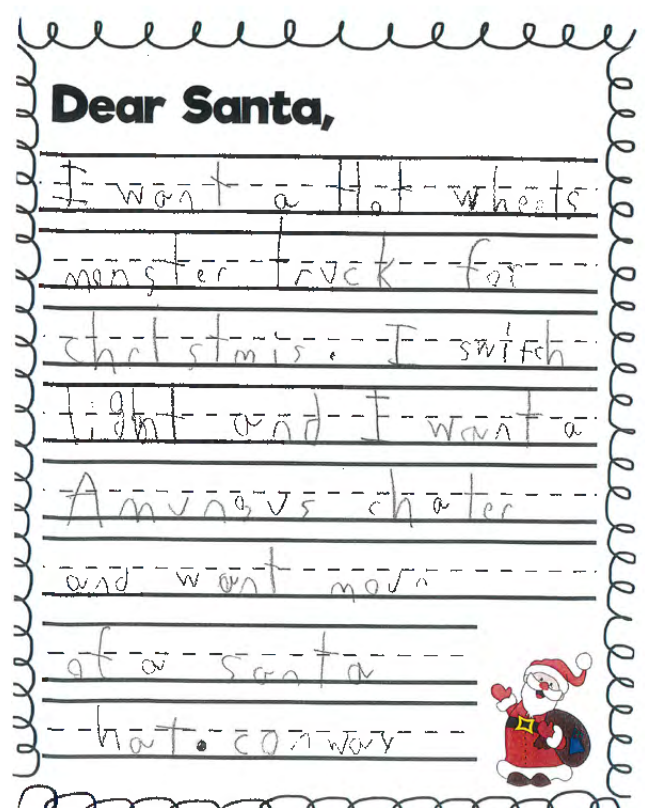 Dear Santa,
I want a Hot wheels
monster truck for
chrtstmis. I switch
light and I want a
Amungus chater
and want
of a santa
hat. conway